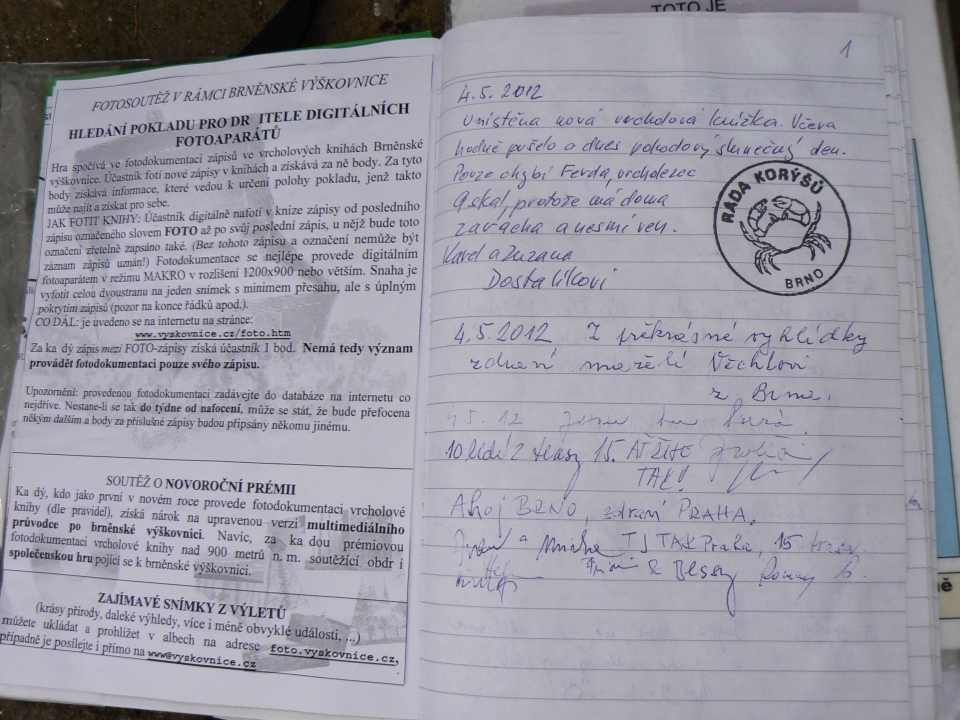 TOTO JE
FOTOSOUTĚŽ V RÁMCI BRNĚNSKÉ VÝŠKOVNICE
HLEDÁNÍ POKLADU PRO DR ITELE DIGITÁLNÍCH
FOTOAPARÁTŮ
Hra spočívá ve fotodokumentaci zápisů ve vrcholových knihách Brněnské
výškovnice. Účastník fotí nové zápisy v knihách a získává za ně body. Za tyto
body získává informace, které vedou k určení polohy pokladu, jenž takto
může najít a získat pro sebe.
JAK FOTIT KNIHY: Účastník digitálně nafotí v knize zápisy od posledního
zápisu označeného slovem FOTO až po svůj poslední zápis, u nějž bude toto
označení zřetelně zapsáno také. (Bez tohoto zápisu a označení nemůže být
záznam zápisů uznán!) Fotodokumentace se nejlépe provede digitálním
fotoaparátem v režimu MAKRO v rozlišení 1200x900 nebo větším. Snaha je
vyfotit celou dvoustranu na jeden snímek s minimem přesahu, ale s úplným
pokrytím zápisů (pozor na konce řádků apod.).
CO DÁL: je uvedeno se na internetu na stránce:
www.vyskovnice.cz/foto.htm
Za ka dý zápis mezi FOTO-zápisy získá účastník 1 bod. Nemá tedy význam
provádět fotodokumentaci pouze svého zápisu.
Upozornění: provedenou fotodokumentaci zadávejte do databáze na internetu co
nejdříve. Nestane-li se tak do týdne od nafocení, může se stát, že bude přefocena
někým dalším a body za příslušné zápisy budou připsány někomu jinému.
SOUTĚŽ O NOVOROČNÍ PRÉMII
Ka dý, kdo jako první v novém roce provede fotodokumentaci vrcholové
knihy (dle pravidel), získá nárok na upravenou verzi multimediálního
průvodce po brněnské výškovnici. Navíc, za ka dou prémiovou
fotodokumentaci vrcholové knihy nad 900 metrů n. m. soutěžící obdrí i
společenskou hru pojící se k brněnské výškovnici.
ZAJÍMAVÉ SNÍMKY Z VÝLETŮ
(krásy přírody, daleké výhledy, více i méně obvyklé události, ...)
můžete ukládat a prohlížet v albech na adrese foto.vyskovnice.cz,
případně je posílejte i přímo na www@vyskovnice.cz
1
4.5. 2012
Umístěna nová vrcholová knížka. Včera
hodně pršelo a dnes pohodový slunečný den.
Pouze chybí Ferda, vrcholezec
Gskal, protože má doma
zavřacha a nesmí ven.
Karel a Zuzana
Dostalíkovi
RADA KORÝŠŮ
BRNO
4.5.2012 Z překrásné vyhlídky
zdraví manželé Věchtovi
z Brna!
4.5.12
10 lidí z trasy 15. AŤ ŽIJE
TAK!
Ahoj BRNO, zdraví PRAHA.
a TJ TAK Praha, 15 trasa.
& Bessy